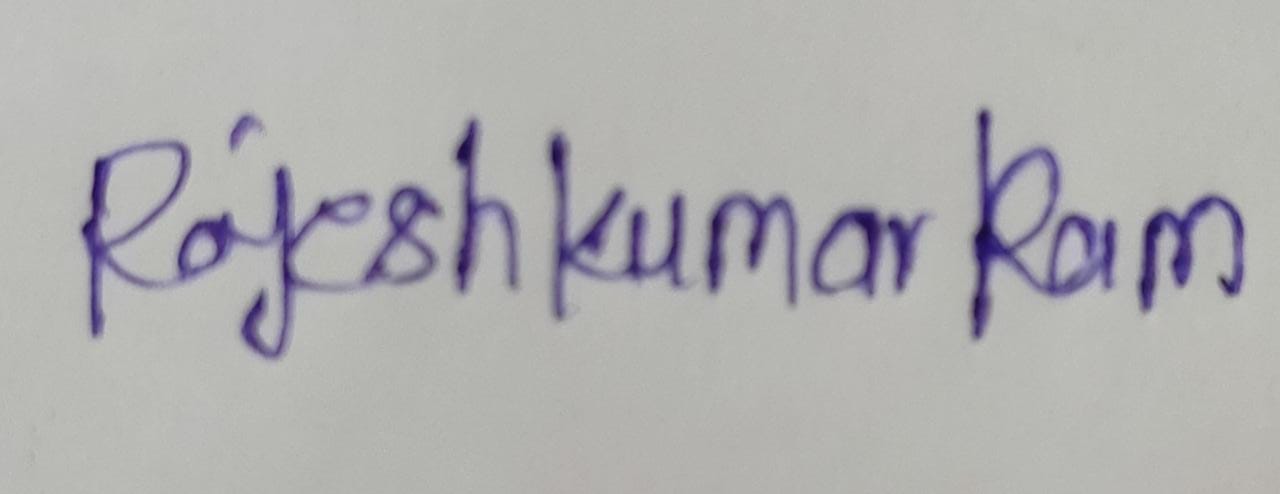 Rajesh kumar Ram